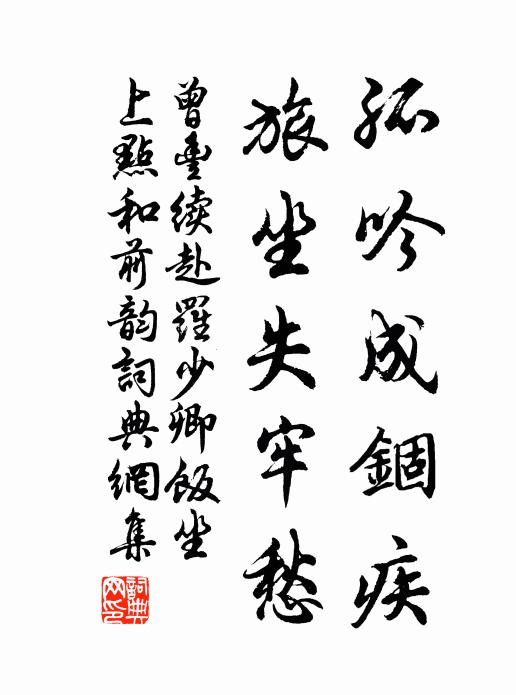 孤吟成錮疾
旅坐失牢愁
曾豐续赴羅少卿飯坐
上點和前韵詞典網集
詞典网印